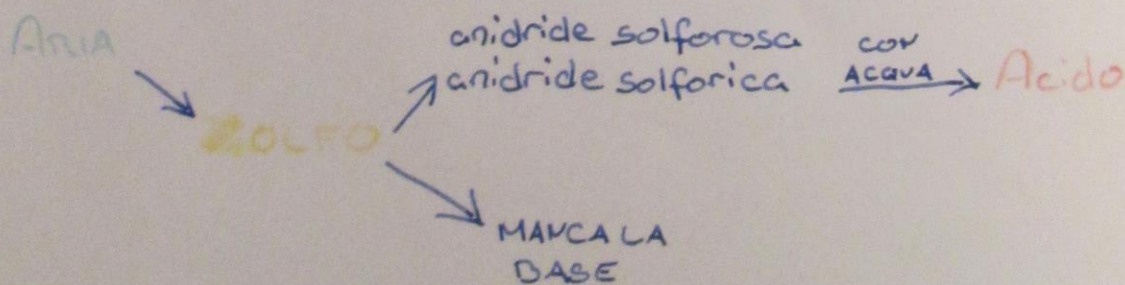 ARIA
anidride solforosa
anidride solforica
CON
ACQUA
Acido
ZOLFO
MANCA LA
BASE